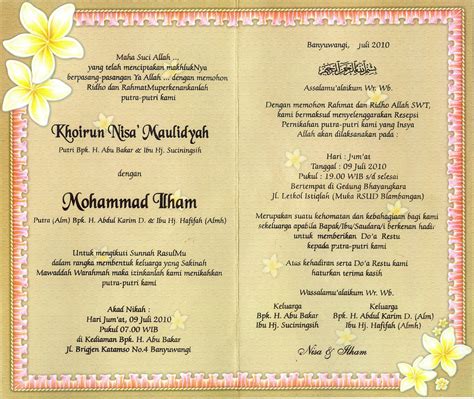 Maha Suci Allah ...
yang telah menciptakan makhlukNya
berpasang-pasangan Ya Allah ... dengan memohon
Ridho dan RahmatMuperkenankanlah
putra-putri kami
Khoirun Nisa' Maulidyah
Putri Bpk. H. Abu Bakar & Ibu Hj. Suciningsih
dengan
Mohammad Ilham
Putra (Alm) Bpk. H. Abdul Karim D. & Ibu Hj. Hafifah (Almh)
Untuk mengikuti Sunnah RasulMu
dalam rangka membentuk keluarga yang Sakinah
Mawaddah Warahmah maka izinkanlah kami menikahkan
putra-putri kami
Akad Nikah :
Hari Jum'at, 09 Juli 2010
Pukul 07.00 WIB
di Kediaman Bpk. H. Abu Bakar
Jl. Brigjen Katamso No.4 Banyuwangi
Banyuwangi, Juli 2010
بسم الله الرحمن الرحيم
Assalamu'alaikum Wr. Wb.
Dengan memohon Rahmat dan Ridho Allah SWT,
kami bermaksud menyelenggarakan Resepsi
Pernikahan putra-putri kami yang Insya
Allah akan dilaksanakan pada :
Hari : Jum'at
Tanggal : 09 Juli 2010
Pukul : 19.00 WIB s/d selesai
Bertempat di Gedung Bhayangkara
Jl. Letkol Istiqlah (Muka RSUD Blambangan)
Merupakan suatu kehormatan dan kebahagiaan bagi kami
sekeluarga apabila Bapak/Ibu/Saudara/i berkenan hadi
untuk memberikan Do'a Restu
kepada putra-putri kami.
Atas kehadiran serta Do'a Restu kami
haturkan terima kasih
Wassalamu'alaikum Wr. Wb.
Keluarga
Bpk H. Abu Bakar
Ibu Hj. Suciningsih
Keluarga
Bpk H. Abdul Karim D. (Alm)
Ibu Hj. Hafifah (Almh)
Nisa & Ilham